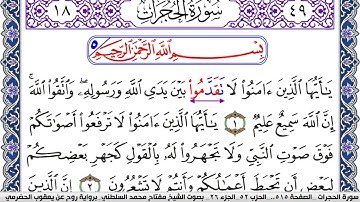 ٤٩ سُورَةُ الْحُجُرَاتِ ١٨
بِسْمِ اللَّهِ الرَّحْمَٰنِ الرَّحِيمِ
يَـٰٓأَيُّهَا الَّذِينَ ءَامَنُوا لَا تَقَدَّمُوا بَيْنَ يَدَيِ اللَّهِ وَرَسُولِهِۦ وَاتَّقُوا اللَّهَ
إِنَّ اللَّهَ سَمِيعٌ عَلِيمٌ ١ يَـٰٓأَيُّهَا الَّذِينَ ءَامَنُوا لَا تَرْفَعُوا أَصْوَٰتَكُمْ
فَوْقَ صَوْتِ النَّبِيِّ وَلَا تَجْهَرُوا لَهُۥ بِالْقَوْلِ كَجَهْرِ بَعْضِكُمْ
لِبَعْضٍ أَن تَحْبَطَ أَعْمَـٰلُكُمْ وَأَنتُمْ لَا تَشْعُرُونَ ٢ إِنَّ الَّذِينَ
سورة الحجرات الصفحة ٥١٥ الحزب ٥٢ الجزء ٢٦ بصوت الشيخ مفتاح محمد السلطني برواية روح عن يعقوب الحضرمي